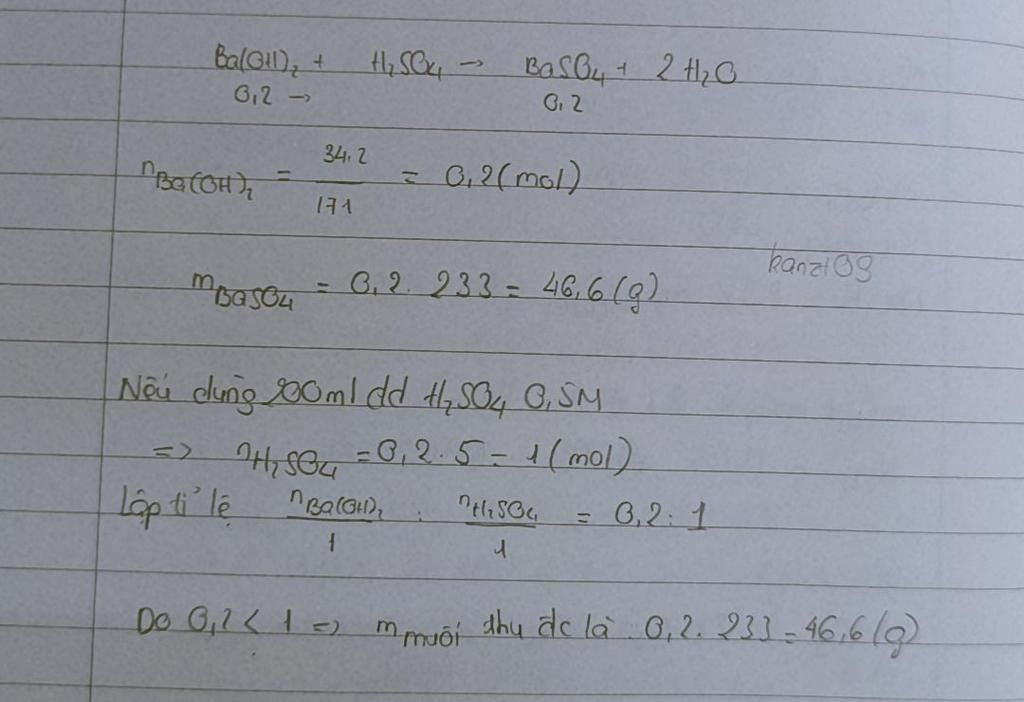 Ba(OH)₂ + H₂SO₄ → BaSO₄ + 2 H₂O
0,2 → 0,2
n Ba(OH)₂ = 34,2 / 171 = 0,2 (mol)
kanzt09
m BaSO₄ = 0,2 . 233 = 46,6 (g)
Nếu dùng 200ml dd H₂SO₄ 0,5M
=> n H₂SO₄ = 0,2 . 5 = 1 (mol)
Lập tỉ lệ n Ba(OH)₂ / 1 : n H₂SO₄ / 1 = 0,2 : 1
Do 0,2 < 1 => m muối thu đc là : 0,2 . 233 = 46,6 (g)